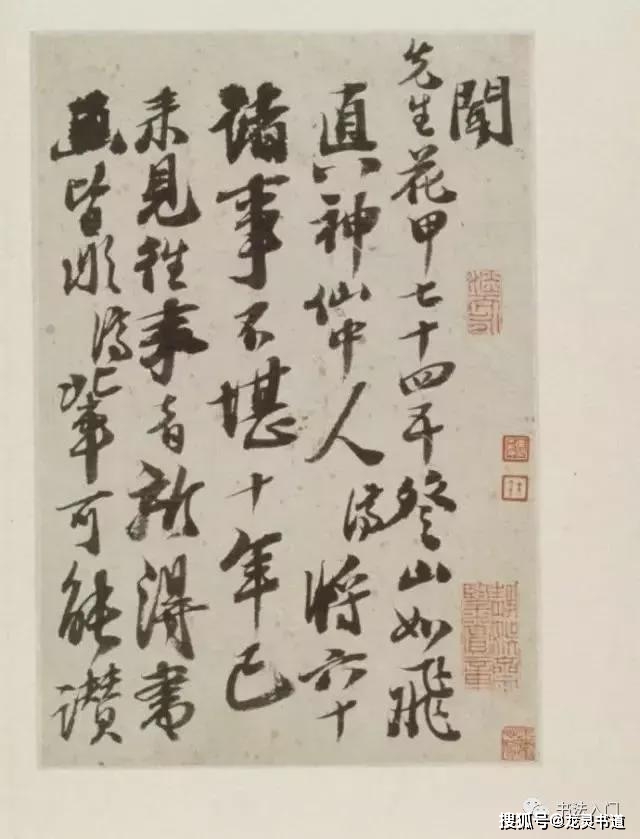 聞
先生花甲七十四五登山如飛
真神仙中人濟將六十
諸事不堪十年已
來見往來者新得書
畫皆非濟輩可能讚
书法入门
搜狐号@龙灵书道